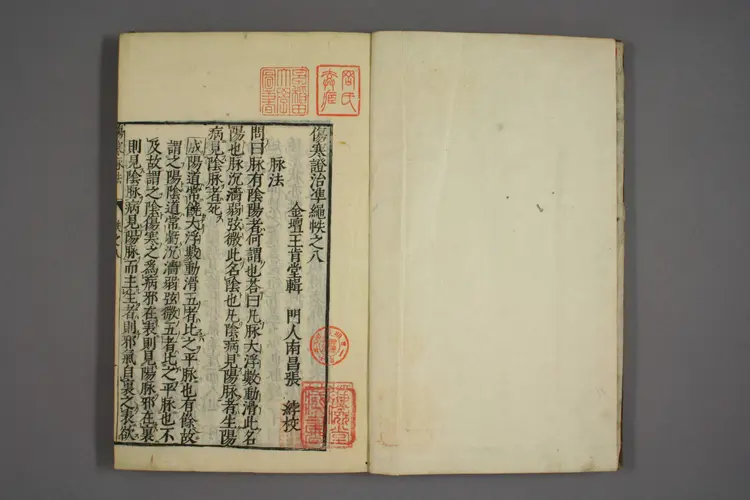 傷寒證治準繩帙之八
金壇王肯堂輯 門人南昌張 綍校
脉法
問曰脉有陰陽者何謂也荅曰凡脉大浮數動滑此名
陽也脉沉濇弱弦微此名陰也凡陰病見陽脉者生陽
病見陰脉者死
成陽道常饒大浮數動滑五者比之平脉也有餘故
謂之陽陰道常虧沉濇弱弦微五者比之平脉也不
及故謂之陰傷寒之為病邪在表則見陽脉邪在裏
則見陰脉病見陽脉而主生者則邪氣自裏之表欲